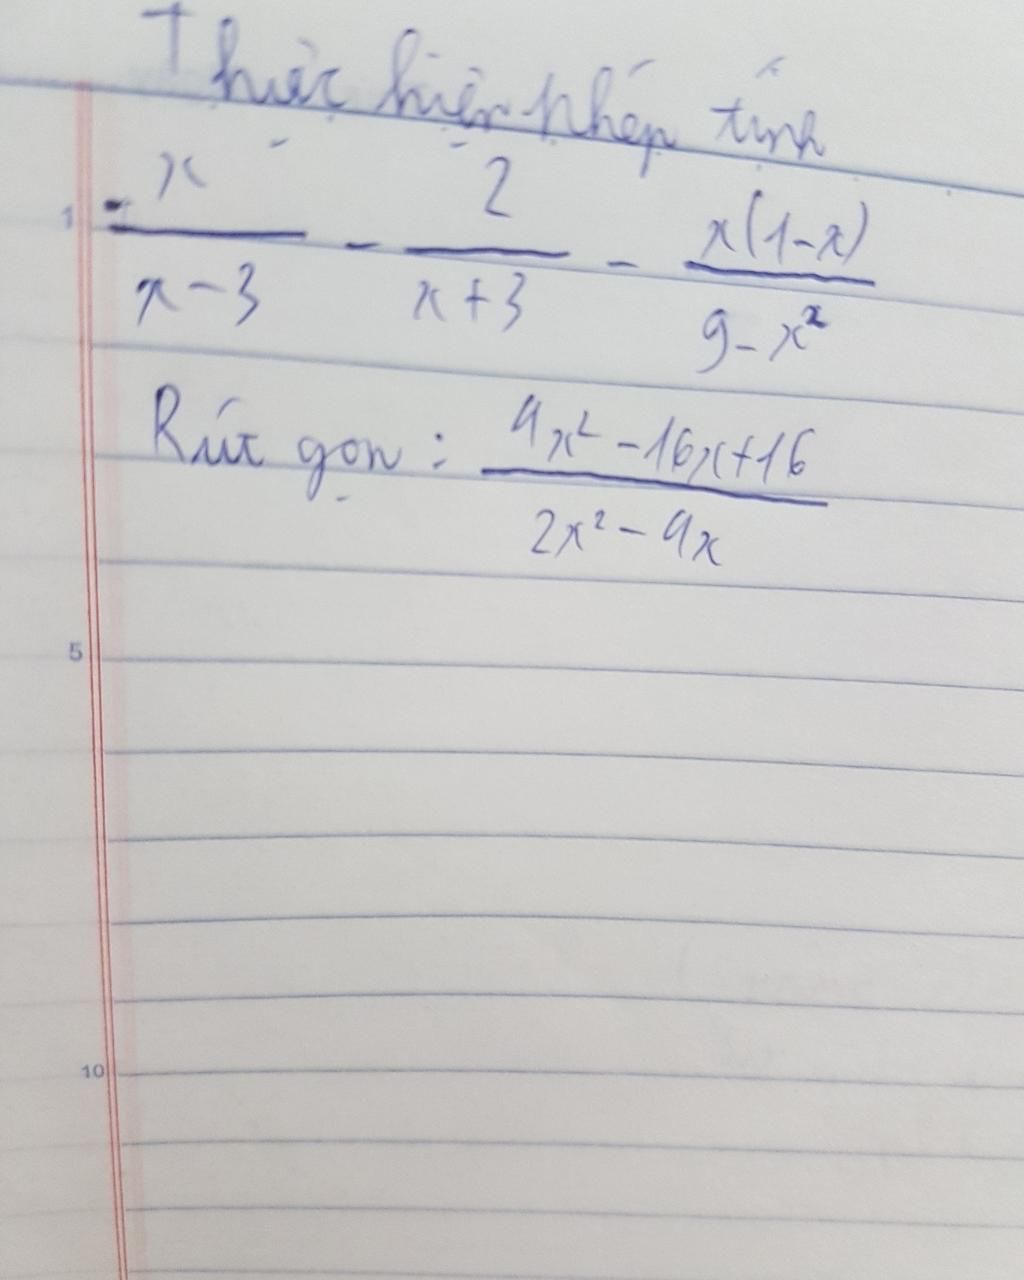 Thực hiện phép tính
1 -x/(x-3) - 2/(x+3) - x(1-x)/(9-x²)
Rút gọn: (4x²-16x+16)/(2x²-4x)
5
10